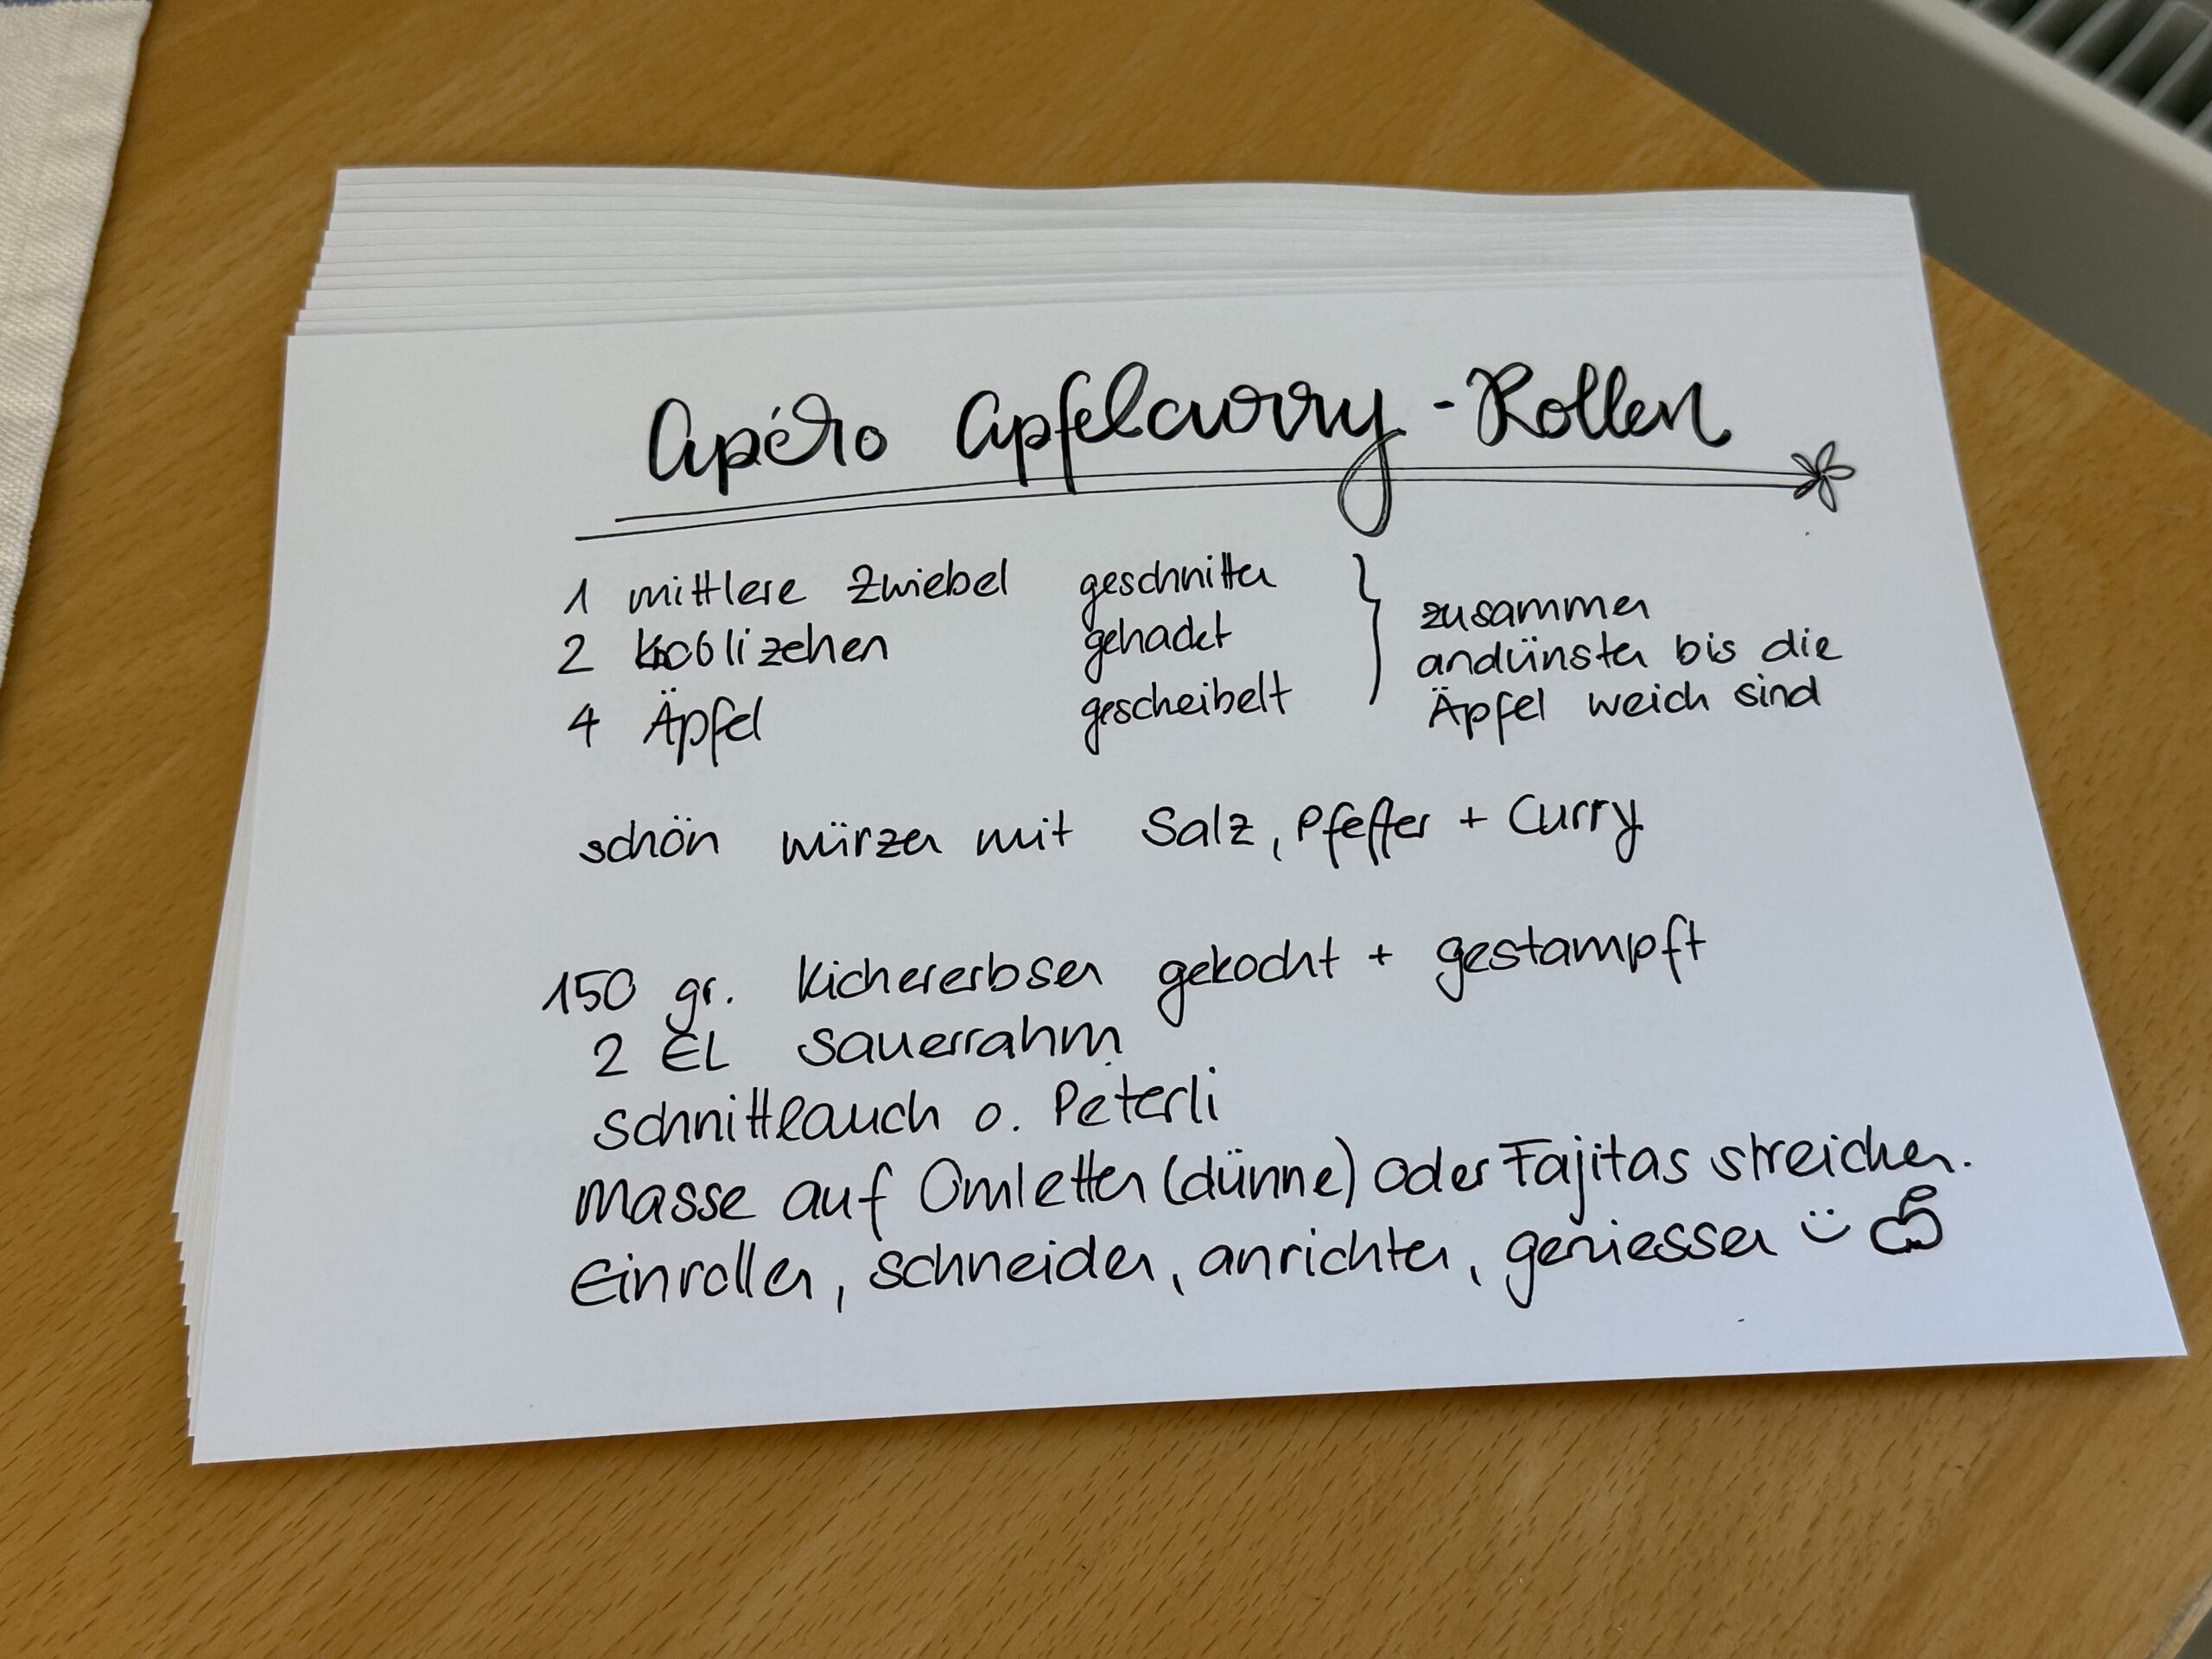 Apéro Apfelcurry-Rollen
1 mittlere Zwiebel geschnitten
2 Knoblizehen gehackt
4 Äpfel gescheibelt
zusammen
andünsten bis die
Äpfel weich sind
schön würzen mit Salz, Pfeffer + Curry
150 gr. Kichererbsen gekocht + gestampft
2 EL Sauerrahm
Schnittlauch o. Peterli
Masse auf Omletten (dünne) oder Fajitas streichen.
Einrollen, schneiden, anrichten, geniessen